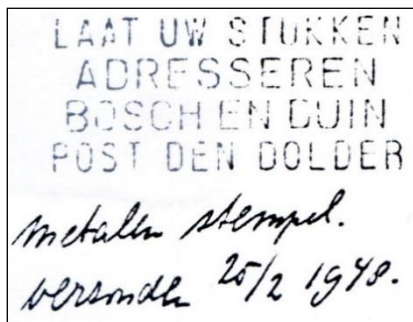 LAAT UW STUKKEN
ADRESSEREN
BOSCH EN DUIN
POST DEN DOLDER
metalen stempel.
verzonden 25/2 1948.